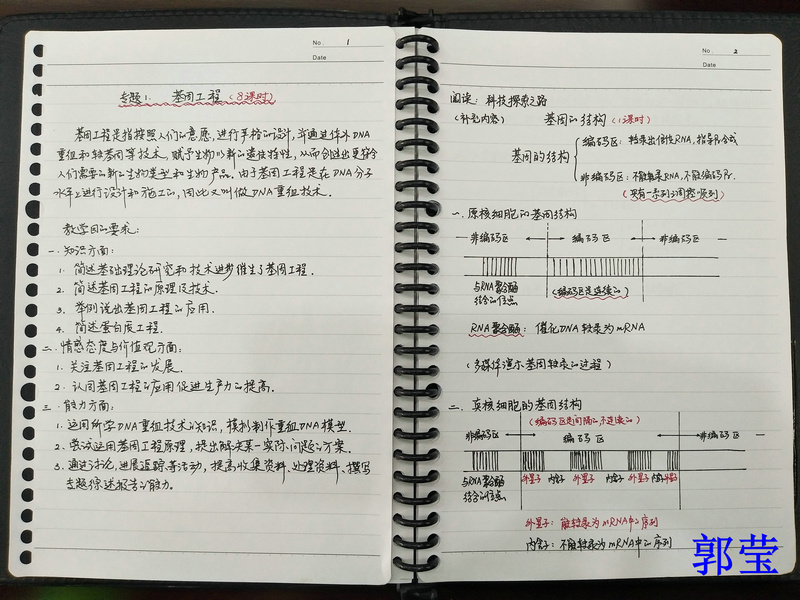 No. 1
Date
专题1. 基因工程(8课时)
基因工程是指按照人们的意愿,进行严格的设计,并通过体外DNA
重组和转基因等技术,赋予生物以新的遗传特性,从而创造出更符合
人们需要的新的生物类型和生物产品.由于基因工程是在DNA分子
水平上进行设计和施工的,因此又叫做DNA重组技术.
教学目的要求:
一.知识方面:
1. 简述基础理论研究和技术进步催生了基因工程.
2. 简述基因工程的原理及技术.
3. 举例说出基因工程的应用.
4. 简述蛋白质工程.
二.情感态度与价值观方面:
1. 关注基因工程的发展.
2. 认同基因工程的应用促进生产力的提高.
三.能力方面:
1. 运用所学DNA重组技术的知识,模拟制作重组DNA模型.
2. 尝试运用基因工程原理,提出解决某一实际问题的方案.
3. 通过讨论,进展追踪等活动,提高收集资料、处理资料、撰写
专题综述报告的能力.
No. 2
Date
阅读:科技探索之路
(补充内容) 基因的结构(1课时)
编码区:转录出信使RNA,指导Pr合成
基因的结构
非编码区:不能转录RNA,不能编码Pr.
一.原核细胞的基因结构
非编码区 编码区 非编码区
与RNA聚合酶 (编码区是连续的)
结合的位点
RNA聚合酶:催化DNA转录为mRNA
(多媒体演示基因转录的过程)
二.真核细胞的基因结构
(编码区是间隔的,不连续的)
非编码区 编码区 非编码区
与RNA聚合酶 外显子 内含子 外显子 内含子 外显子 内含子 外显子
结合的位点
外显子:能转录为mRNA中的序列
内含子:不能转录为mRNA中的序列
郭莹